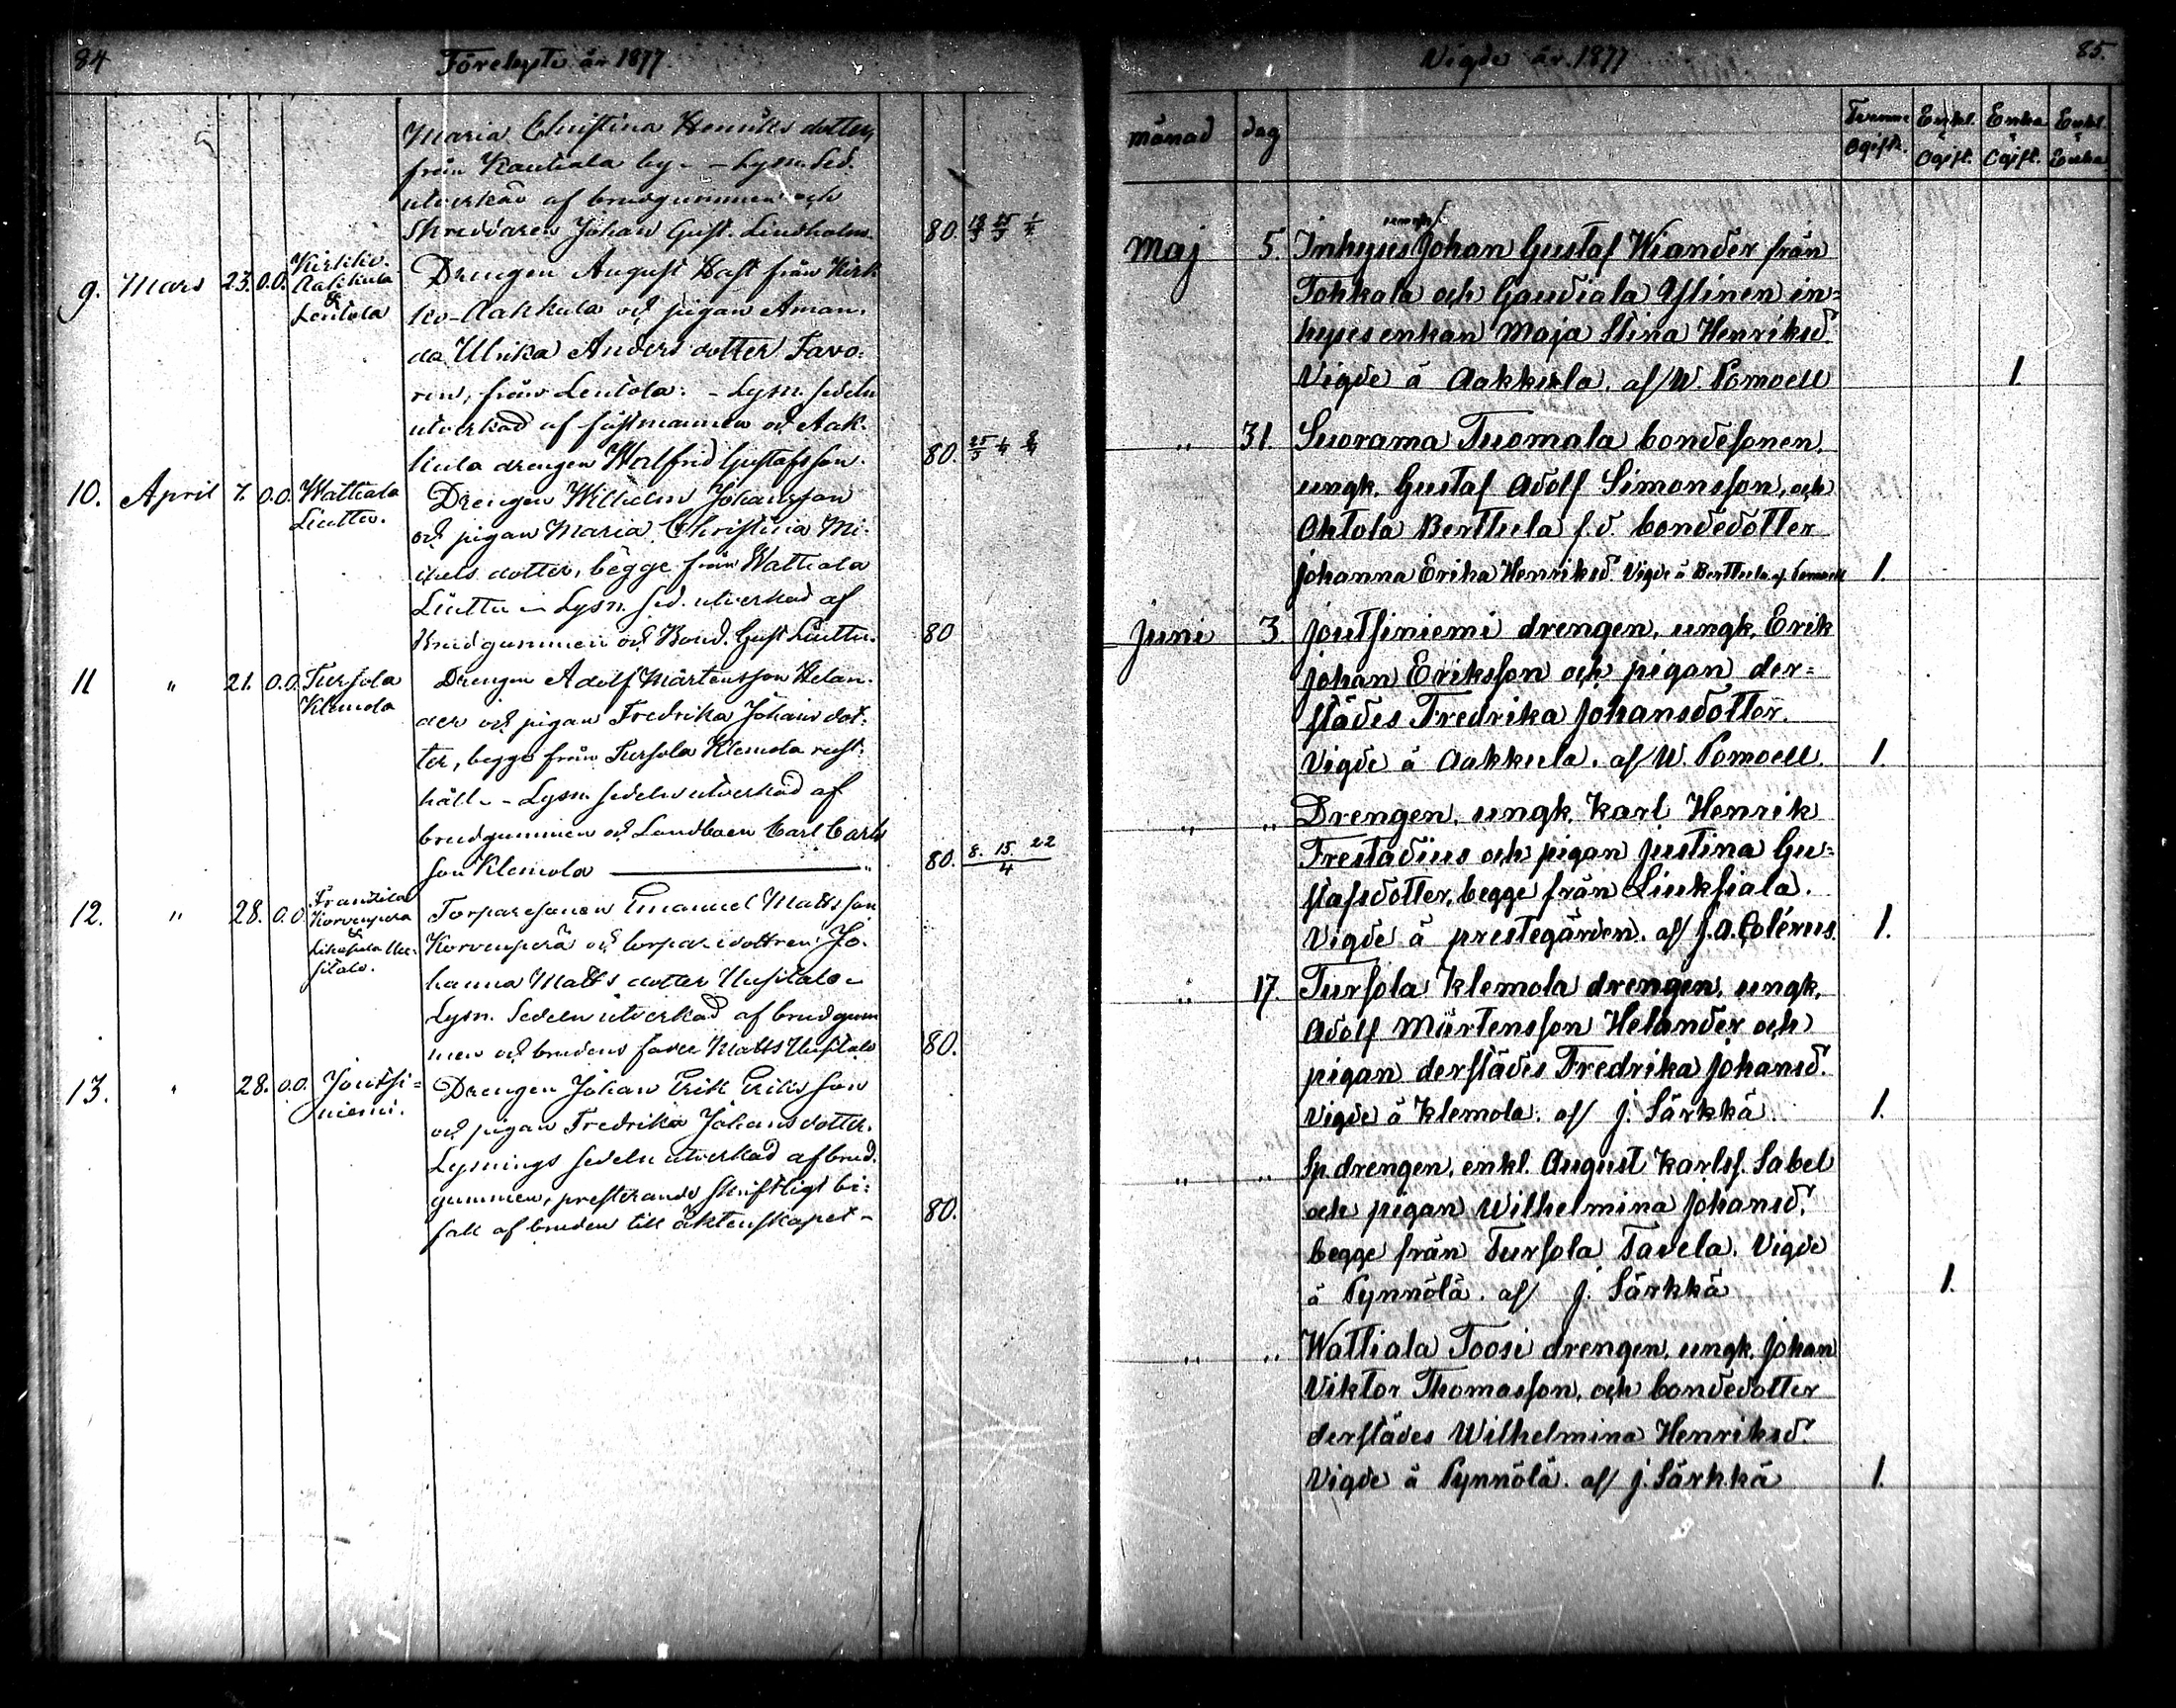 84
Förelyste år 1877.
Maria Christina Henriks dotter,
från Kautiala by. – Lysn. Sed.
utverkad af brudgummen och
Skreddaren Johan Gust. Lindholm. 80. 18/3 25/3 1/4
9. Mars 23. O.O. Kirkko- Aakkula & Lentola Drengen August Hast från Kirk
ko-Aakkula och pigan Aman-
da Ulrika Anders dotter Favo-
rin, från Lentola. – Lysn. sedeln
utverkad af fästmannen och Aak-
kula drengen Walfrid Gustafsson. 80. 25/3 1/4 8/4
10. April 7. O.O. Wattiala Liuttu. Drengen Wilhelm Johansson
och pigan Maria Christina Mi-
chels dotter, begge från Wattiala
Liuttu – Lysn. sed. utverkad af
Brudgummen och Bond. Gust Liuttu. 80
11 " 21. O.O. Tursola Klemola Drengen Adolf Mårtensson Helan-
der och pigan Fredrika Johans dot-
ter, begge från Tursola Klemola rust-
håll. – Lysn. sedeln utverkad af
brudgummen och Landboen Carl Carls
son Klemola " 80. 8. 15. 22/4
12. " 28. O.O. Frantsila Korvenperä & Uusitalo. Torparesonen Emanuel Matts son
Korvenperä och torparedottren Jo-
hanna Matts dotter Uusitalo –
Lysn. Sedeln utverkad af brudgum
men och brudens fader Matts Uusitalo 80.
13. " 28. O.O. Joutsi= niemi. Drengen Johan Erik Eriks son
och pigan Fredrika Johans dotter.
Lysnings sedeln utverkad af brud-
gummen, presterande skriftligt bi-
fall af bruden till äktenskapet – 80.
Vigde år 1877
85.
månad dag Tvenne Ogift. Enkl. & Ogift. Enka & Ogift. Enkl. & Enka
Maj 5. Inhyses Johan Gustaf Wiander från
Tohkala och Gaudiala Ylinen in=
hyses enkan Maja Stina Henriksd.
Vigde å Aakkula. af W. Pomoell 1.
" 31. Suorama Tuomala bondesonen,
ungk. Gustaf Adolf Simonsson, och
Ohtola Berttula f.d. bondedotter
Johanna Erika Henriksd. Vigde å Berttula af Pomoell 1.
Juni 3 Joutsiniemi drengen, ungk. Erik
Johan Eriksson och pigan der=
städes Fredrika Johansdotter.
Vigde å Aakkula. af W. Pomoell. 1.
" " Drengen, ungk. Karl Henrik
Frestadius och pigan Justina Gu=
stafsdotter, begge från Liuksiala.
Vigde å prestegården. af J. A. Colérus. 1.
" 17. Tursola Klemola drengen, ungk.
Adolf Mårtensson Helander och
pigan derstädes Fredrika Johansd.
Vigde å Klemola. af J. Särkkä. 1.
" " Sp. drengen, enkl. August Karlss. Sabel
och pigan Wilhelmina Johansd.
begge från Tursola Tavela. Vigde
å Pynnölä. af J. Särkkä 1.
" " Wattiala Toosi drengen, ungk. Johan
Viktor Thomasson, och bondedotter
derstädes Wilhelmina Henriksd.
Vigde å Pynnölä. af J. Särkkä 1.